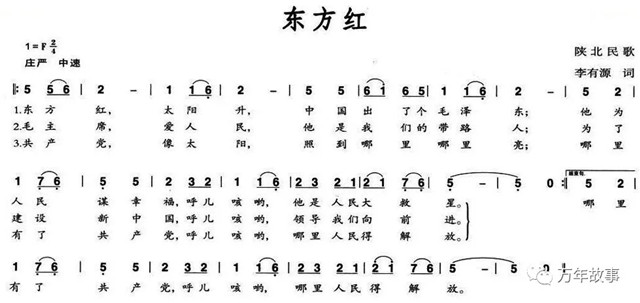 东方红
1=F 2/4
陕北民歌
庄严 中速
李有源 词
‖: 5 5 6 | 2 - | 1 1 6 | 2 - | 5 5 | 6 1 6 5 | 1 1 6 | 2 - | 5 2 |
1.东 方 红, 太 阳 升, 中 国 出 了 个 毛 泽 东; 他 为
2.毛 主 席, 爱 人 民, 他 是 我 们 的 带 路 人; 为 了
3.共 产 党, 像 太 阳, 照 到 哪 里 哪 里 亮; 哪 里
1 7 6 | 5 5 | 2 3 2 | 1 1 6 | 2 3 2 1 | 2 1 7 6 | 5 - | 5 0 :‖ 5 2 |
人 民 谋 幸 福,呼 儿 咳 哟, 他 是 人 民 大 救 星。 哪 里
建 设 新 中 国,呼 儿 咳 哟, 领 导 我 们 向 前 进。
有 了 共 产 党,呼 儿 咳 哟, 哪 里 人 民 得 解 放。
1 7 6 | 5 5 | 2 3 2 | 1 1 6 | 2 3 2 1 | 2 1 7 6 | 5 - | 5 - | 5 0 ‖
有 了 共 产 党,呼 儿 咳 哟, 哪 里 人 民 得 解 放。
万年故事